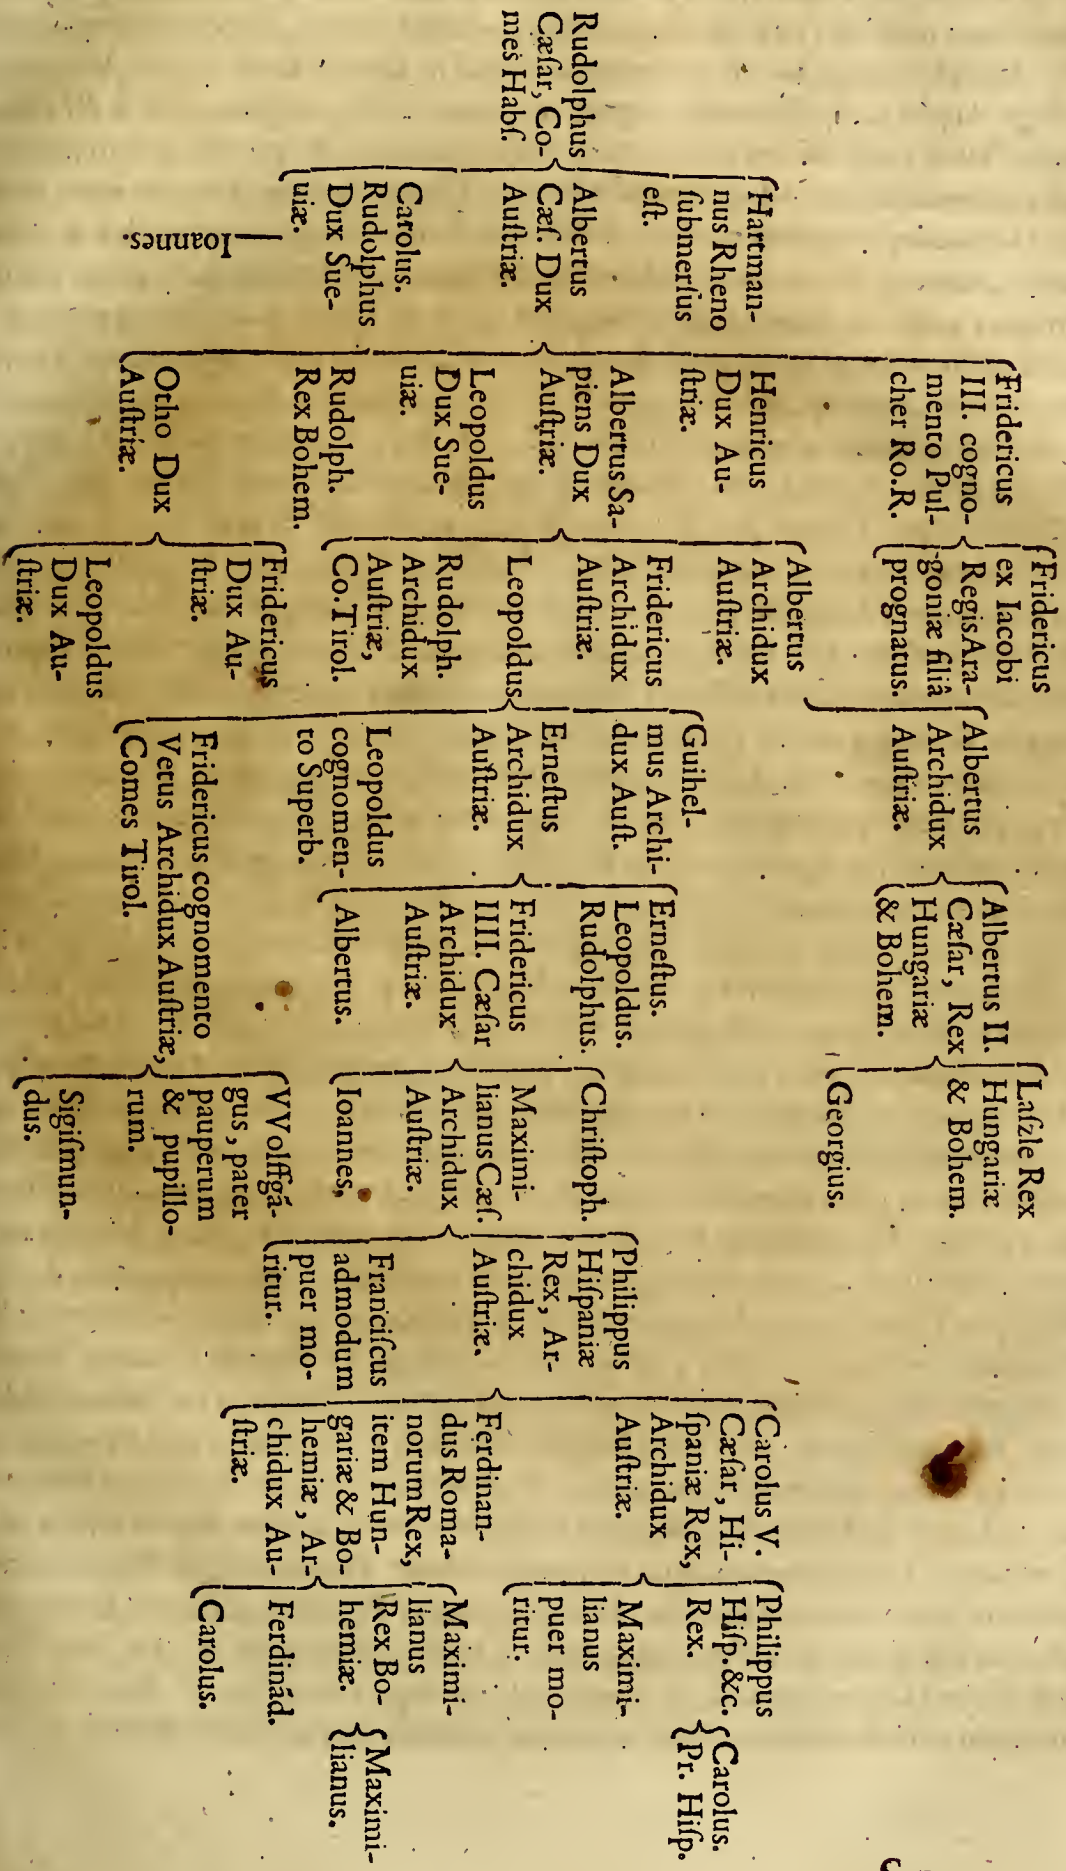 Rudolphus
Cæſar, Co-
mes Habſ.
Hartman-
nus Rheno
ſubmerſus
eſt.
Albertus
Cæſ. Dux
Auſtriæ.
Carolus.
Rudolphus
Dux Sue-
uiæ.
Ioannes.
Fridericus
III. cogno-
mento Pul-
cher Ro.R.
Henricus
Dux Au-
ſtriæ.
Albertus Sa-
piens Dux
Auſtriæ.
Leopoldus
Dux Sue-
uiæ.
Rudolph.
Rex Bohem.
Otho Dux
Auſtriæ.
Fridericus
ex Iacobi
Regis Ara-
goniæ filiâ
prognatus.
Albertus
Archidux
Auſtriæ.
Fridericus
Archidux
Auſtriæ.
Leopoldus
Rudolph.
Archidux
Auſtriæ,
Co. Tirol.
Fridericus
Dux Au-
ſtriæ.
Leopoldus
Dux Au-
ſtriæ.
Albertus
Archidux
Auſtriæ.
Guihel-
mus Archi-
dux Auſt.
Erneſtus
Archidux
Auſtriæ.
Leopoldus
cognomen-
to Superb.
Fridericus cognomento
Vetus Archidux Auſtriæ,
Comes Tirol.
Albertus II.
Cæſar, Rex
Hungariæ
& Bohem.
Erneſtus.
Leopoldus.
Rudolphus.
Fridericus
IIII. Cæſar
Archidux
Auſtriæ.
Albertus.
Laſzle Rex
Hungariæ
& Bohem.
Georgius.
Chriſtoph.
Maximi-
lianus Cæſ.
Archidux
Auſtriæ.
Ioannes,
VVolffgá-
gus, pater
pauperum
& pupillo-
rum.
Sigiſmun-
dus.
Philippus
Hiſpaniæ
Rex, Ar-
chidux
Auſtriæ.
Franciſcus
admodum
puer mo-
ritur.
Carolus V.
Cæſar, Hi-
ſpaniæ Rex,
Archidux
Auſtriæ.
Ferdinan-
dus Roma-
norum Rex,
item Hun-
gariæ & Bo-
hemiæ, Ar-
chidux Au-
ſtriæ.
Philippus
Hiſp. &c.
Rex.
Maximi-
lianus
puer mo-
ritur.
Maximi-
lianus
Rex Bo-
hemiæ.
Ferdinád.
Carolus.
Carolus.
Pr. Hiſp.
Maximi-
lianus.